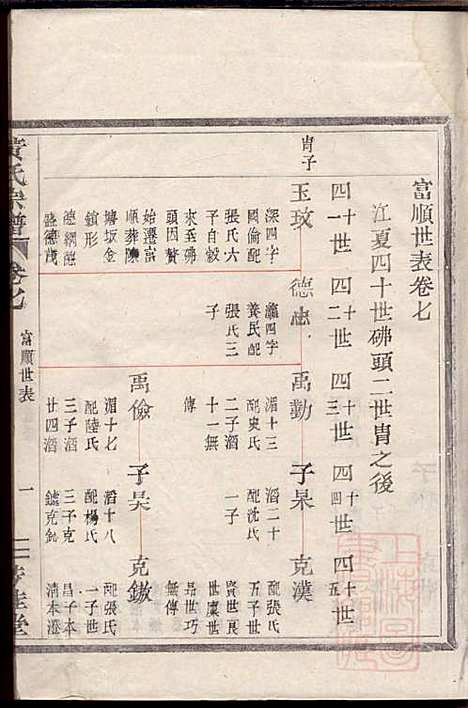 富順世表卷七
江夏四十世硑頭二世胄之後
四十一世
四十二世
四十三世
四十四世
四十五世
胄子
玉玟
深四字
國倫配
張氏六
子自穀
來至硑
頭因贅
始遷富
順葬陳
壩坂金
鎖形
德綱德
德茂
德忠
瀛四字
養民配
張氏三
禹勤
湄十三
配史氏
二子滔
十一無
傳
子杲
滔二十
配沈氏
一子
克漢
配張氏
五子世
賢世良
世麇世
昂世巧
無傳
禹儉
湄十七
配陸氏
三子滔
廿四滔
子昊
滔十八
配楊氏
三子克
鑪克釚
克鏾
配張氏
一子世
昌子本
清本澄
黃氏宗譜
卷七
富順世表
一